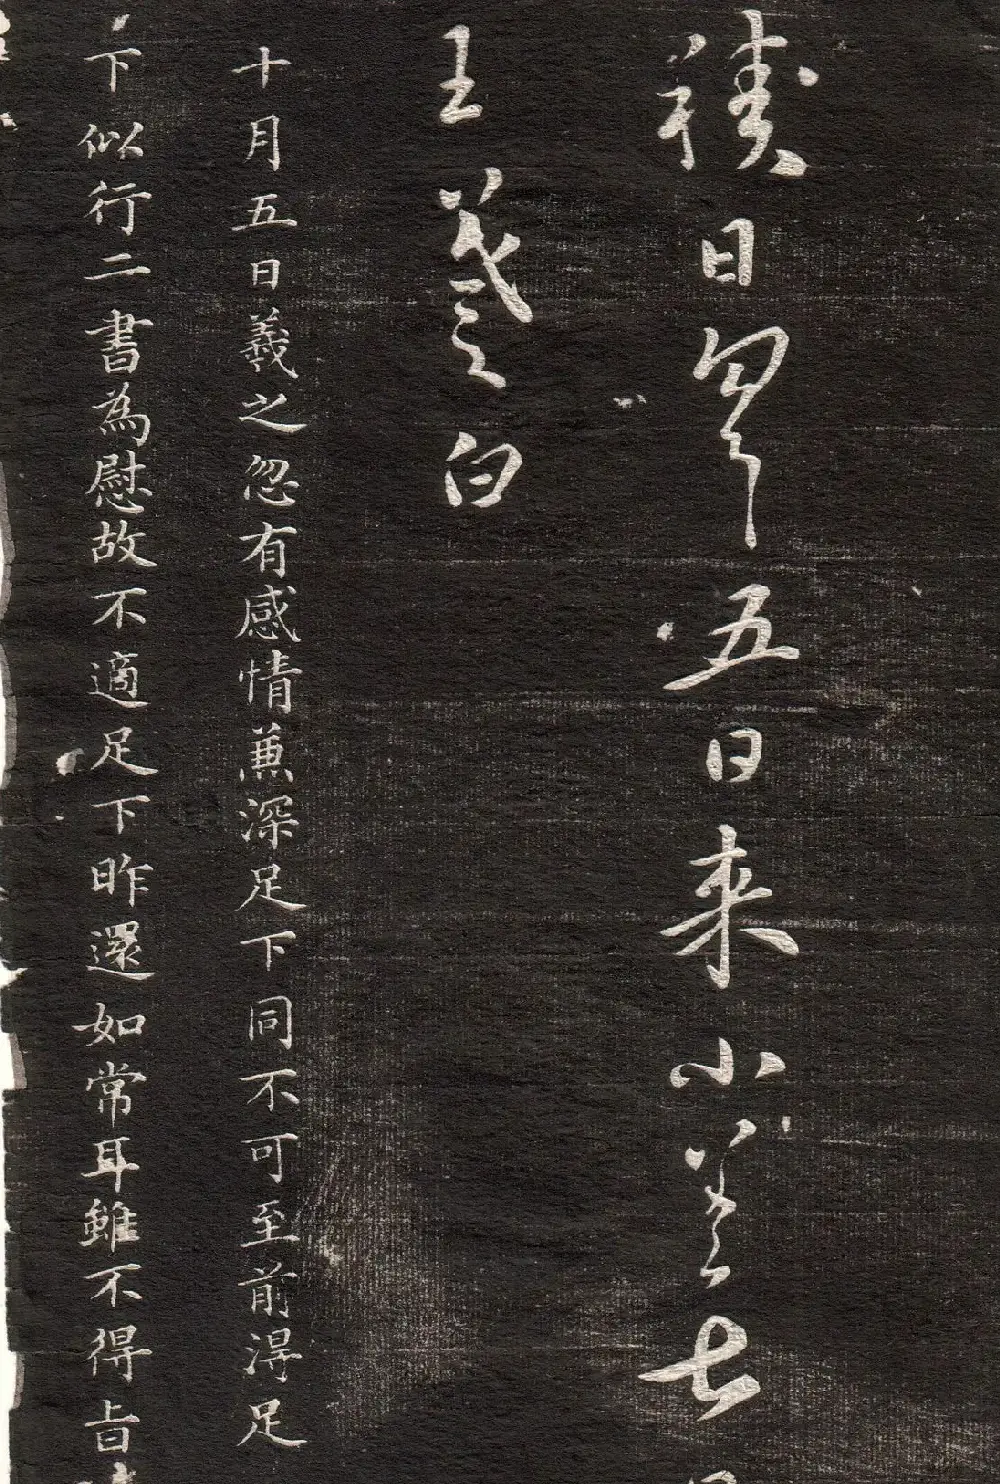 積日四五日来小差
王羲之白
十月五日羲之忽有感情兼深足下同不可至前得足
下似行二書為慰故不適足下昨還如常耳雖不得旨